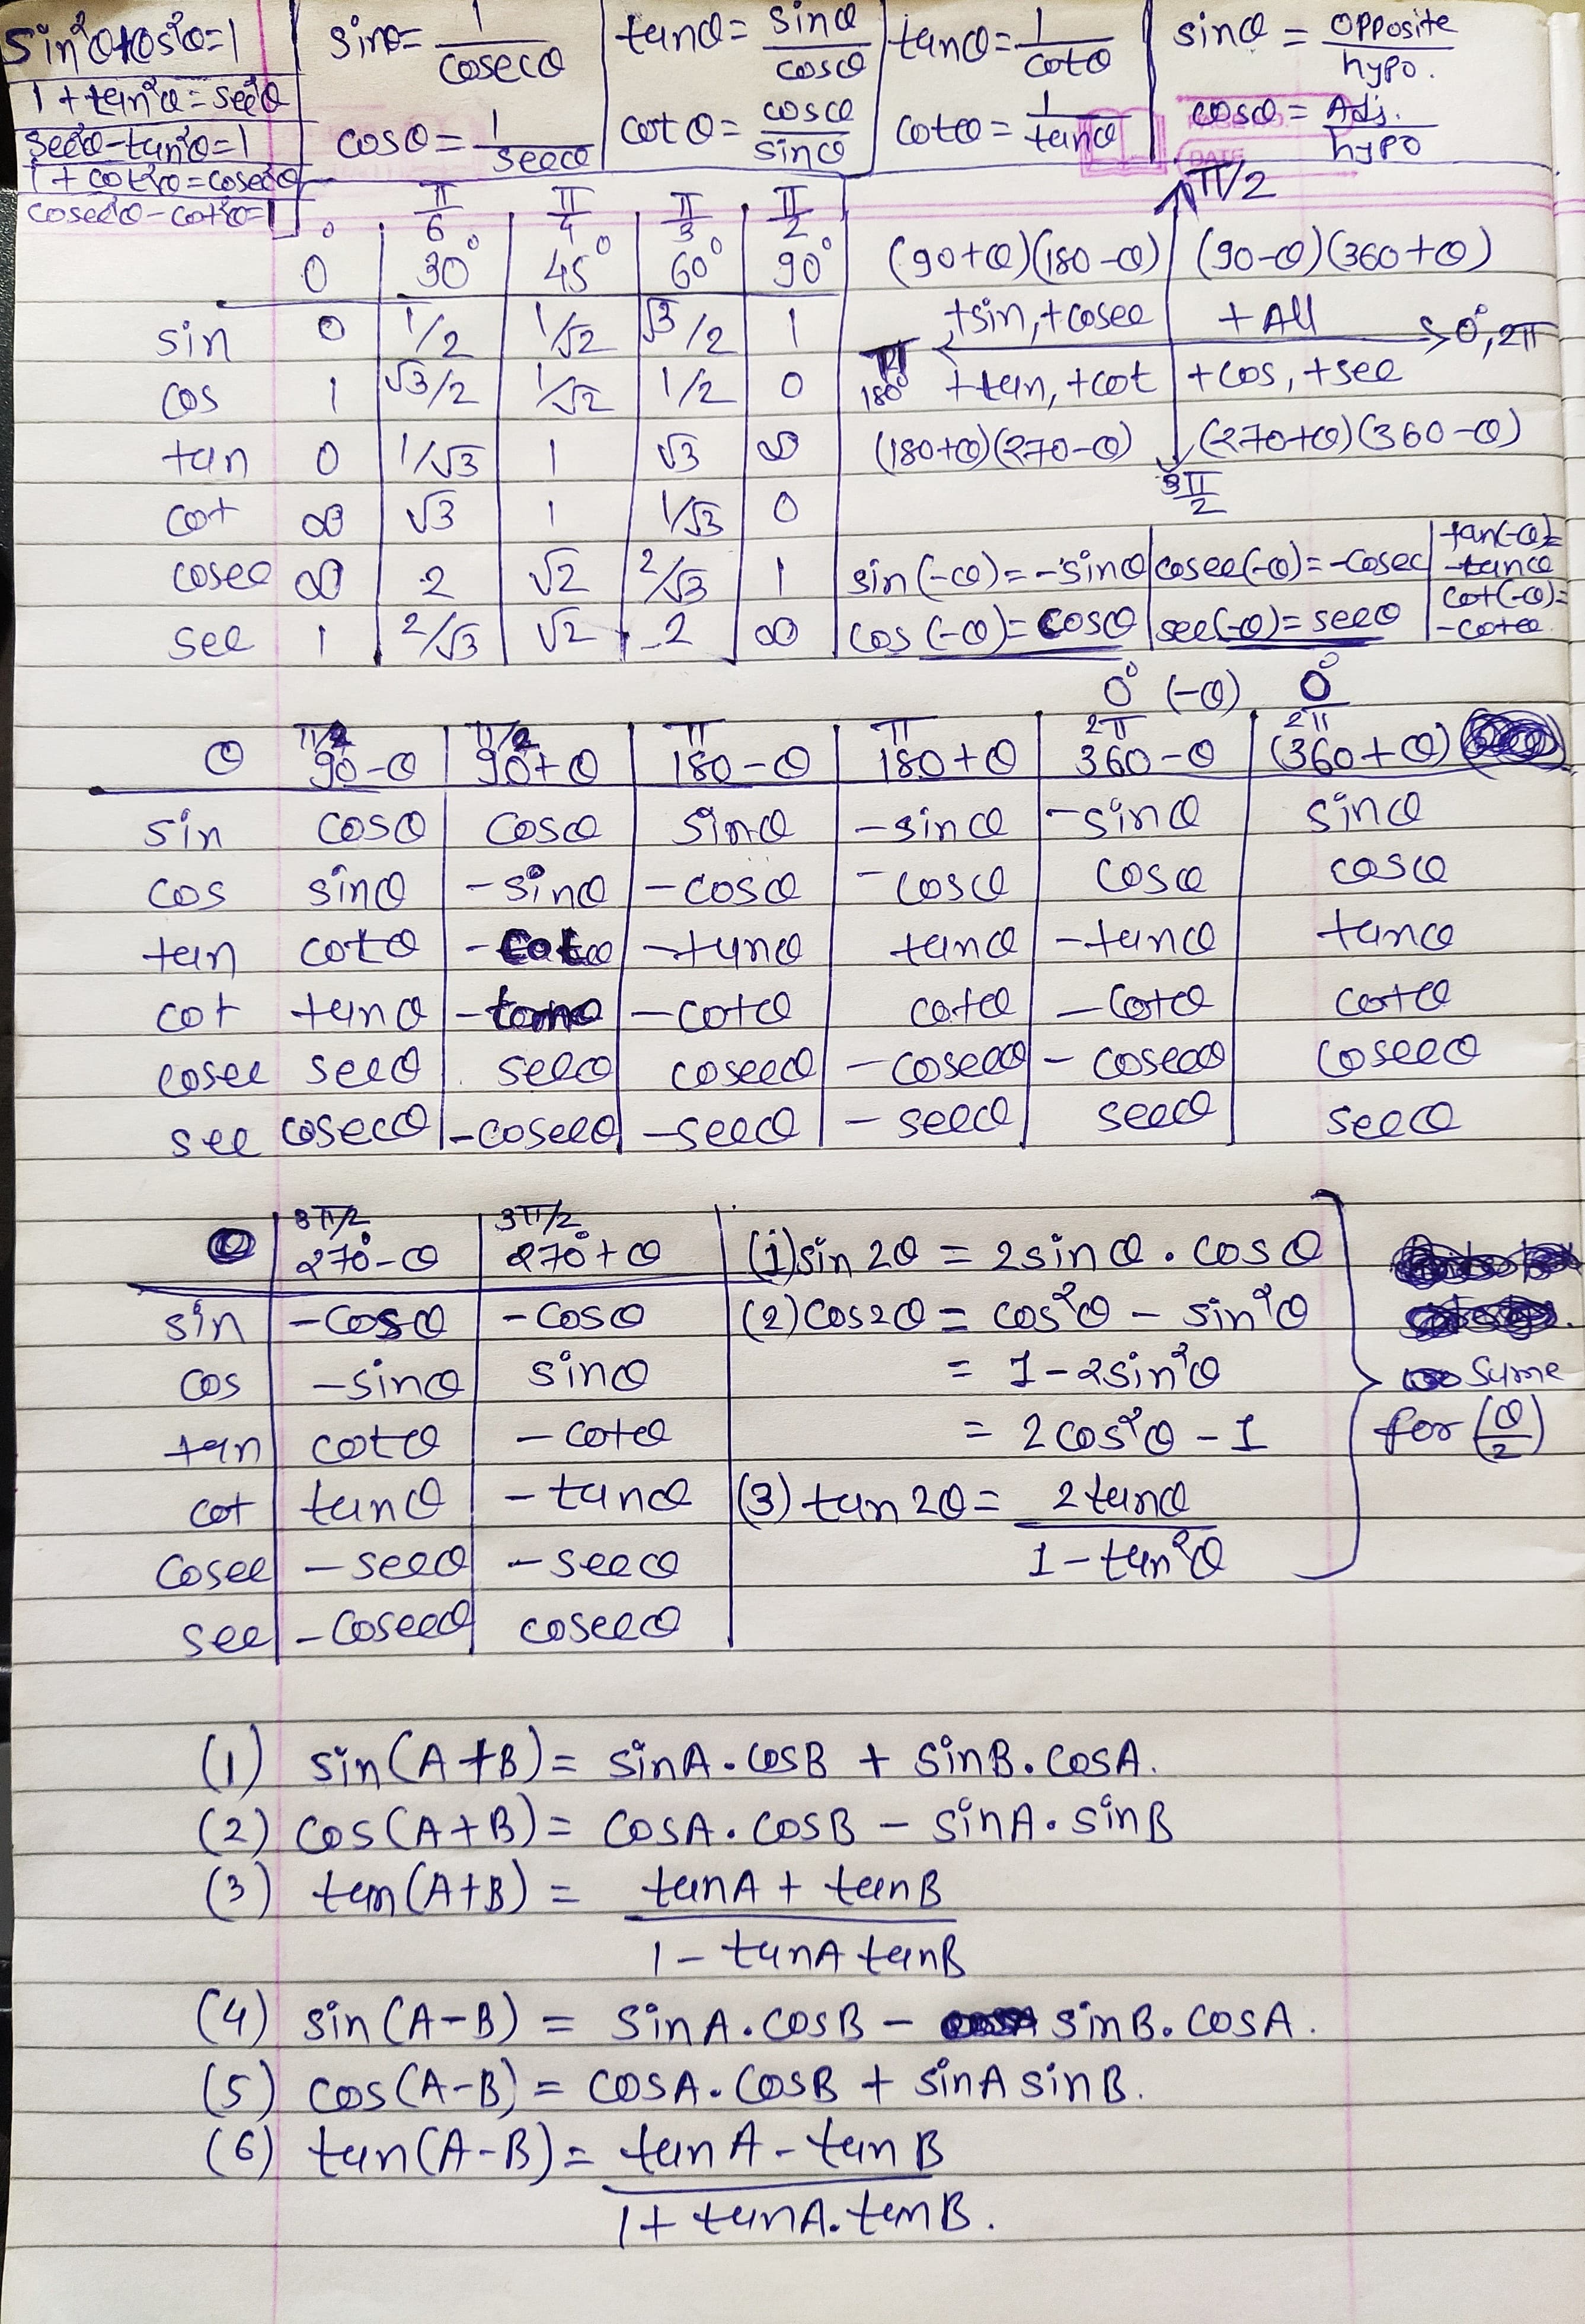 sin²θ+cos²θ=1 | sinθ= 1/cosecθ | tanθ= sinθ/cosθ | tanθ= 1/cotθ | sinθ = opposite/hypo.
1+tan²θ=sec²θ
sec²θ-tan²θ=1 | cosθ= 1/secθ | cotθ= cosθ/sinθ | cotθ= 1/tanθ | cosθ= Adj./hypo
1+cot²θ=cosec²θ
cosec²θ-cot²θ=1
π/6 π/4 π/3 π/2
0° 30° 45° 60° 90°
sin 0 1/2 1/√2 √3/2 1
cos 1 √3/2 1/√2 1/2 0
tan 0 1/√3 1 √3 ∞
cot ∞ √3 1 1/√3 0
cosec ∞ 2 √2 2/√3 1
sec 1 2/√3 √2 2 ∞
π/2
(90+θ)(180-θ) (90-θ)(360+θ)
+sin,+cosec +All
π 180° 0°,2π
+tan,+cot +cos,+sec
(180+θ)(270-θ) (270+θ)(360-θ)
3π/2
sin(-θ)=-sinθ | cosec(-θ)=-cosec | tan(-θ)= -tanθ
cos(-θ)=cosθ | sec(-θ)=secθ | cot(-θ)= -cotθ
0° (-θ) 0°
π/2 π/2 π π 2π 2π
θ 90-θ 90+θ 180-θ 180+θ 360-θ (360+θ)
sin cosθ cosθ sinθ -sinθ -sinθ sinθ
cos sinθ -sinθ -cosθ -cosθ cosθ cosθ
tan cotθ -cotθ -tanθ tanθ -tanθ tanθ
cot tanθ -tanθ -cotθ cotθ -cotθ cotθ
cosec secθ secθ cosecθ -cosecθ -cosecθ cosecθ
sec cosecθ -cosecθ -secθ -secθ secθ secθ
3π/2 3π/2
θ 270°-θ 270°+θ
sin -cosθ -cosθ
cos -sinθ sinθ
tan cotθ -cotθ
cot tanθ -tanθ
cosec -secθ -secθ
sec -cosecθ cosecθ
(1) sin2θ = 2sinθ.cosθ
(2) cos2θ = cos²θ - sin²θ
= 1-2sin²θ
= 2cos²θ-1
(3) tan2θ = 2tanθ/1-tan²θ
same
for (θ/2)
(1) sin(A+B)= sinA.cosB + sinB.cosA.
(2) cos(A+B)= cosA.cosB - sinA.sinB
(3) tan(A+B) = tanA + tanB
1-tanA tanB
(4) sin(A-B) = sinA.cosB - sinB.cosA.
(5) cos(A-B)= cosA.cosB + sinA sinB.
(6) tan(A-B)= tanA-tanB
1+tanA.tanB.